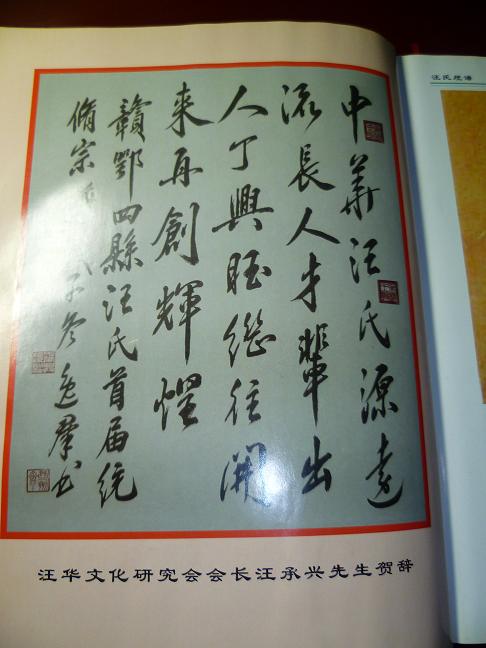 中華汪氏源遠
流長人才輩出
人丁興旺繼往開
来再創輝煌
贛鄂四縣汪氏首届統
脩宗 冬逸群书
汪华文化研究会会长汪承兴先生贺辞
汪氏统谱